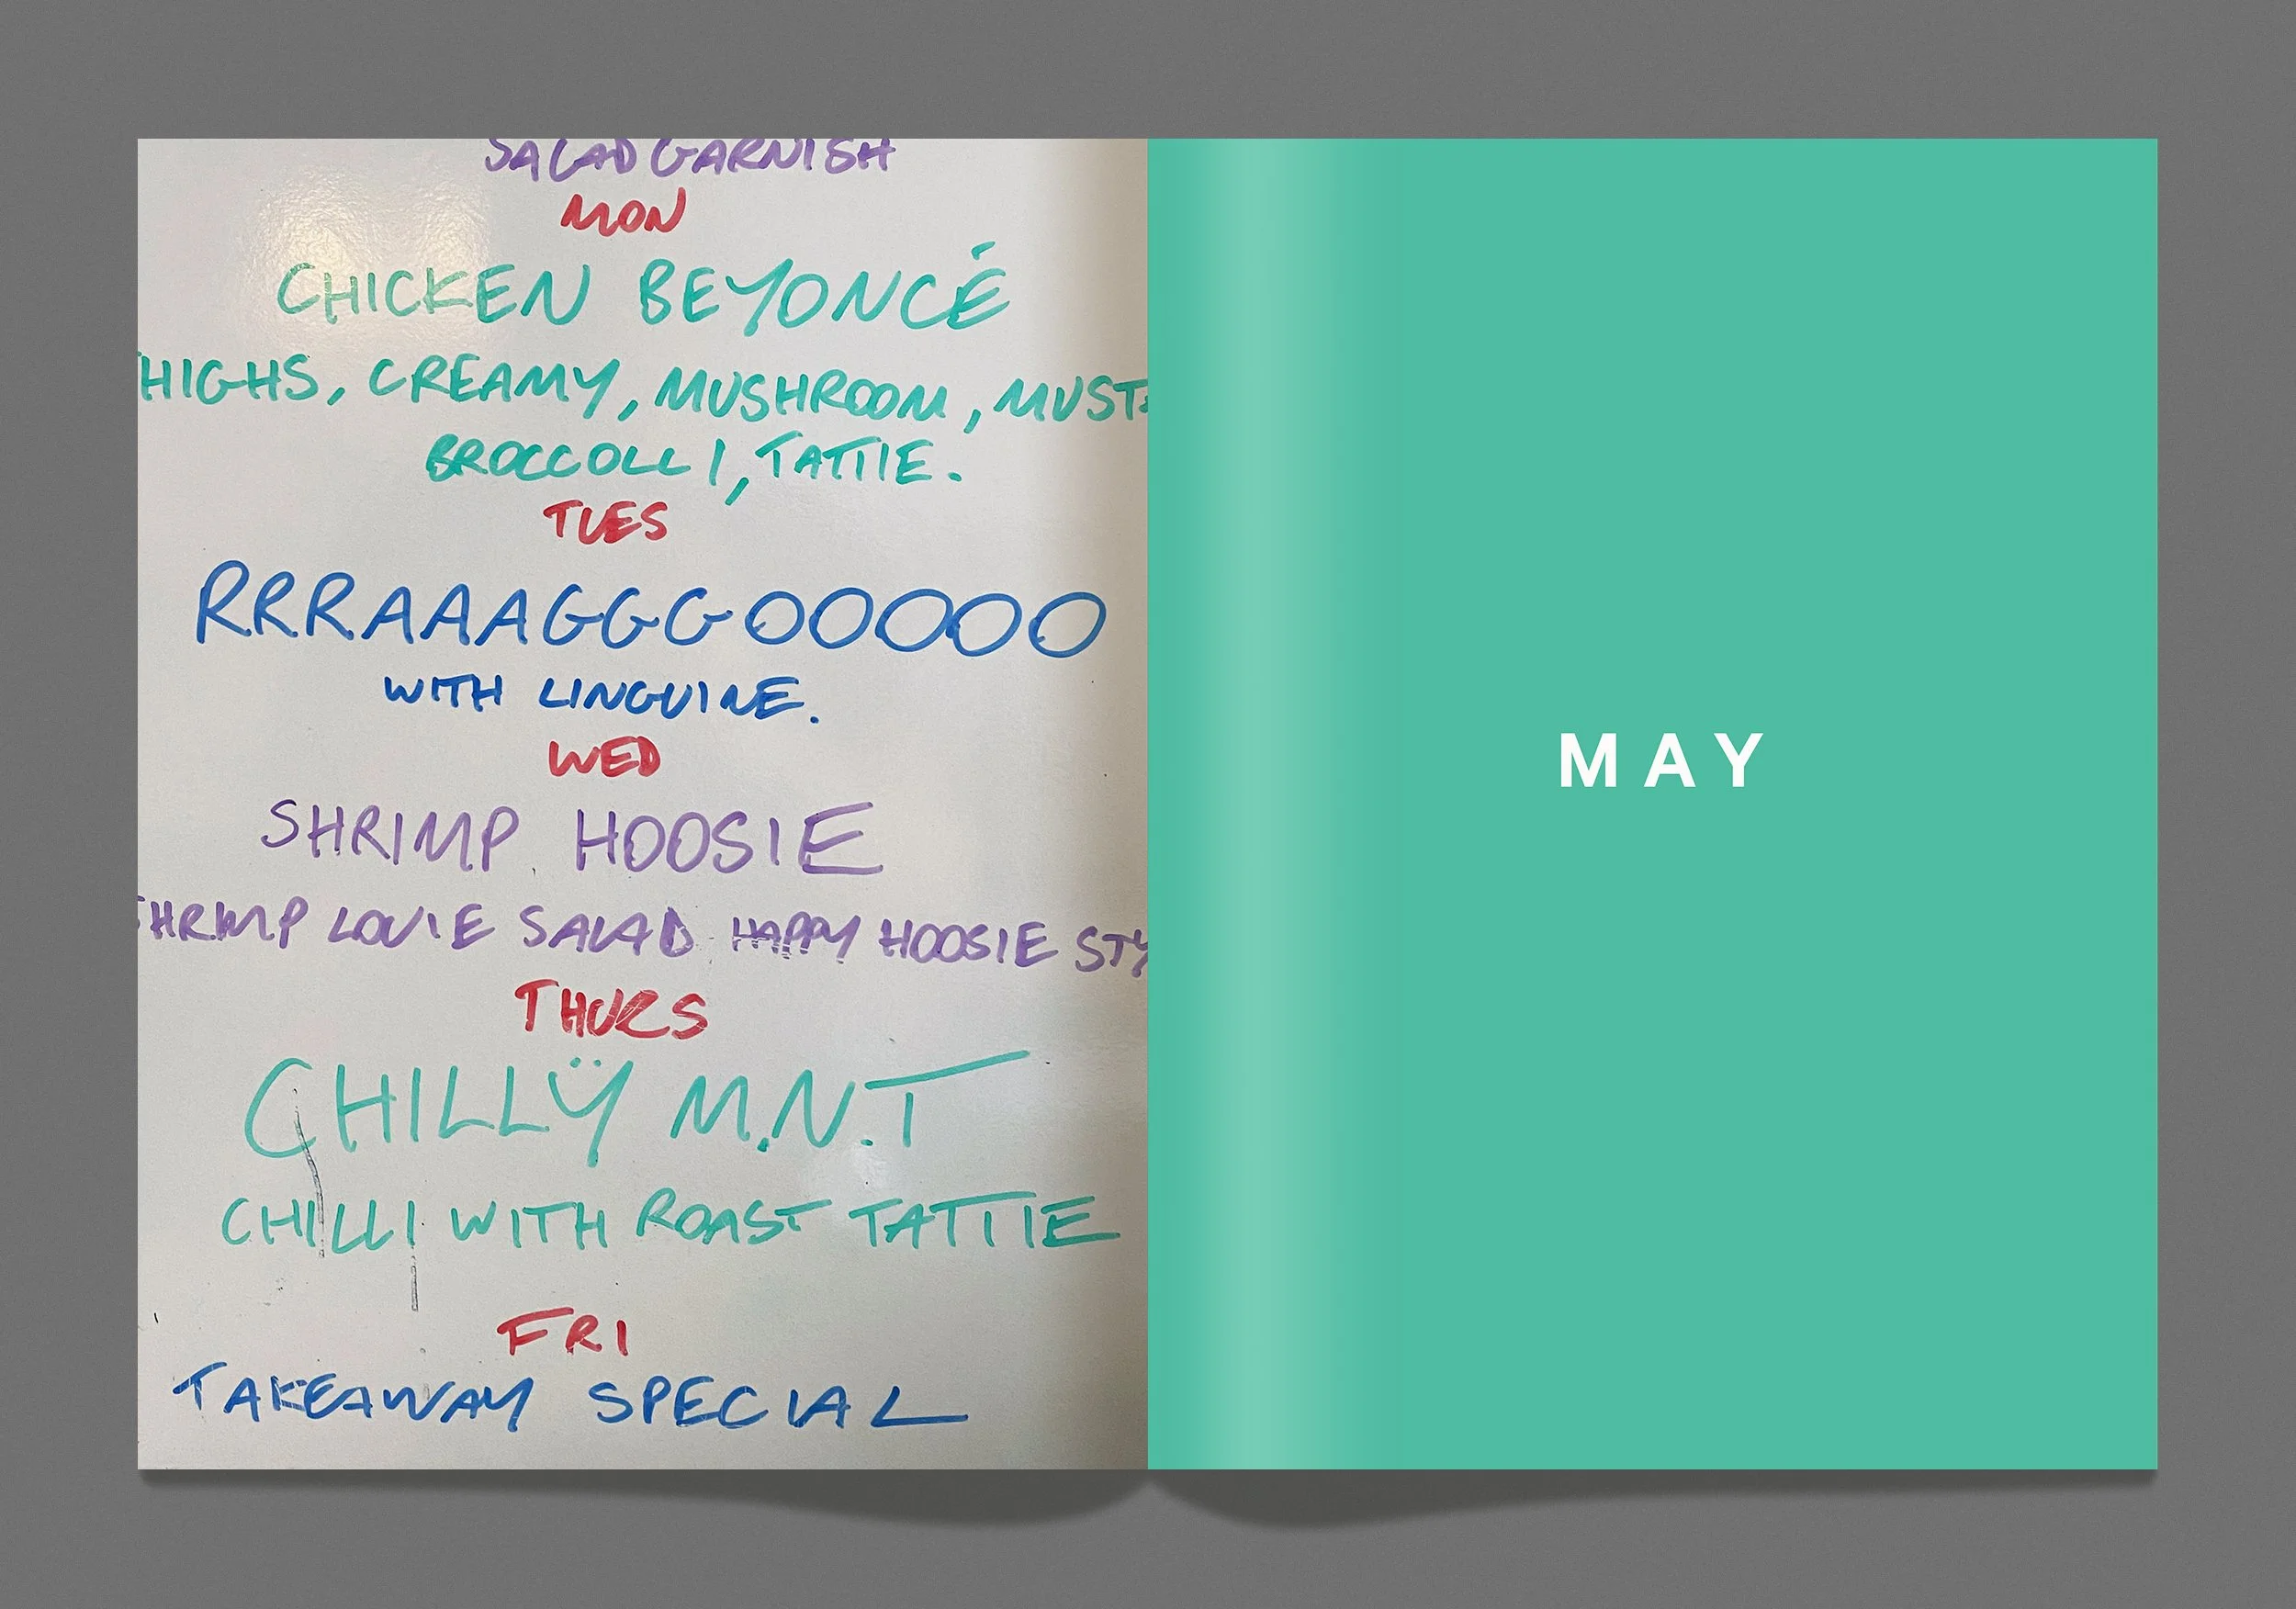 SALAD GARNISH
MON
CHICKEN BEYONCÉ
HIGHS, CREAMY, MUSHROOM, MUST
BROCCOLLI, TATTIE.
TUES
RRRAAAGGGOOOOO
WITH LINGUINE.
WED
SHRIMP HOOSIE
SHRIMP LOUIE SALAD HAPPY HOOSIE STY
THURS
CHILLŸ M.N.T
CHILLI WITH ROAST TATTIE
FRI
TAKEAWAY SPECIAL
MAY